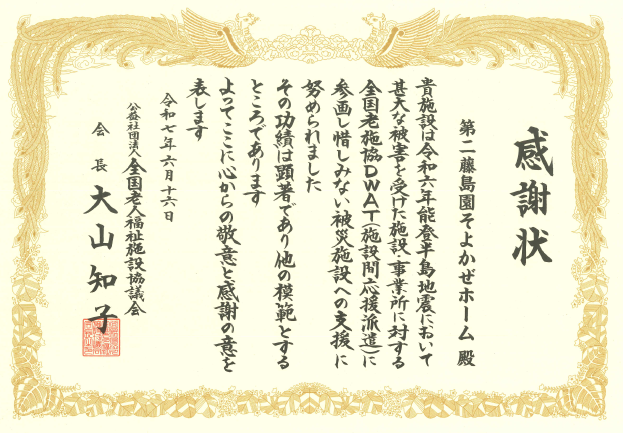 感謝状
第二藤島園そよかぜホーム 殿
貴施設は令和六年能登半島地震において
甚大な被害を受けた施設・事業所に対する
全国老施協DWAT(施設間応援派遣)に
参画し惜しみない被災施設への支援に
努められました
その功績は顕著であり他の模範とする
ところであります
よってここに心からの敬意と感謝の意を
表します
令和七年六月十六日
公益社団法人 全国老人福祉施設協議会
会長 大山知子